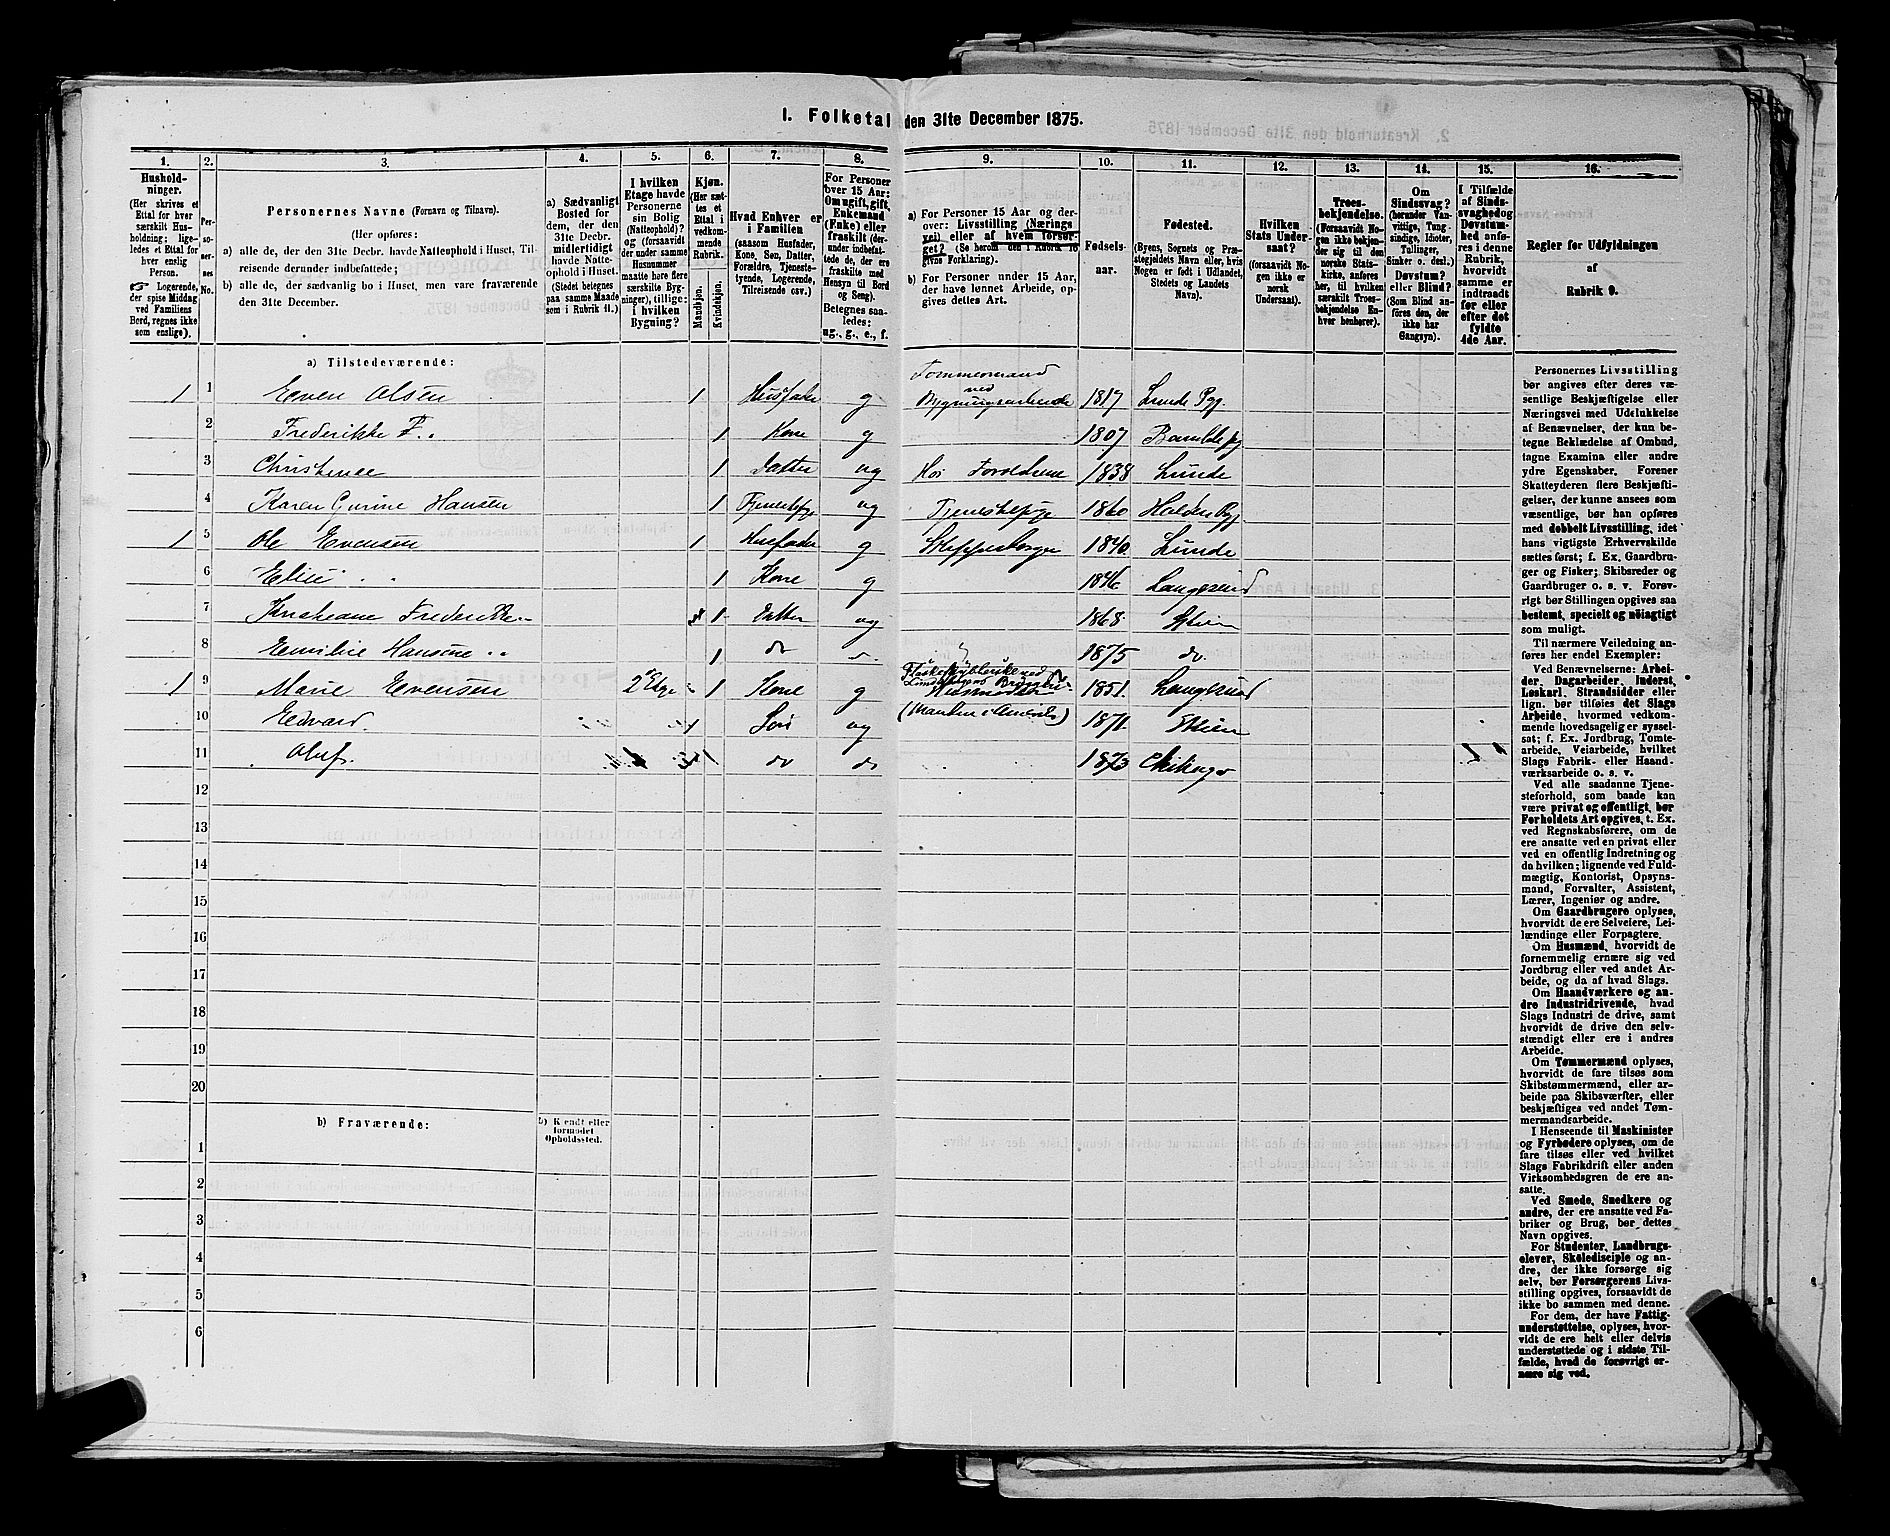 1. Folketal den 31te December 1875.
1. 2. 3. 4. 5. 6. 7. 8. 9. 10. 11. 12. 13. 14. 15. 16.
Hushold-
ninger.
(Her skrives et
Ettal for hver
særskilt Hus-
holdning; lige-
ledes et Ettal
for hver enslig
Person.
Logerende,
der spise Middag
ved Familiens
Bord, regnes ikke
som enslige).
Per-
so-
ner-
nes
No.
Personernes Navne (Fornavn og Tilnavn).
(Her opføres:
a) alle de, der den 31te Decbr. havde Natteophold i Huset, Til-
reisende derunder indbefattede;
b) alle de, der sædvanlig bo i Huset, men vare fraværende
den 31te December.
a) Sædvanligt
Bosted for
dem, der den
31te Decbr.
midlertidigt
havde Natte-
ophold i Huset.
(Stedet betegnes
paa samme Maade
som i Rubrik 11.)
I hvilken
Etage havde
Personerne
sin Bolig
(Natteophold)?
og (forsaavidt
der under samme
Husnummer
maatte høre flere
særskilte Byg-
ninger), tillige:
i hvilken
Bygning?
Kjøn.
(Her sæt-
tes et
Ettal i
vedkom-
mende
Rubrik.
Mandkjøn.
Kvindekjøn.
Hvad Enhver er
i Familien
(saasom Husfader,
Kone, Søn, Datter,
Forældre, Tjeneste-
tyende, Logerende,
Tilreisende osv.)
For Personer
over 15 Aar:
Om ugift, gift,
Enkemand
(Enke) eller
fraskilt (der-
under indbefat-
tede de, der ere
fraskilte med
Hensyn til Bord
og Seng).
Betegnes saa-
ledes:
ug., g., e., f.
a) For Personer 15 Aar og der-
over: Livsstilling (Nærings-
vei) eller af hvem forsør-
get? (Se herom den i Rubrik 16
givne Forklaring).
b) For Personer under 15 Aar,
der have lønnet Arbeide, op-
gives dettes Art.
Fødsels-
aar.
Fødested.
(Byens, Sognets og Præ-
stegjeldets Navn eller, hvis
Nogen er født i Udlandet,
Stedets og Landets
Navn).
Hvilken
Stats Under-
saat?
(forsaavidt No-
gen ikke er
norsk
Undersaat).
Troes-
bekjendelse.
(Forsaavidt No-
gen ikke bekjen-
der sig til den
norske Stats-
kirke, anføres
her, til hvilken
særskilt Troes-
bekjendelse En-
hver henhører).
Om
Sindssvag?
(herunder Van-
vittige, Tung-
sindige, Idioter,
Tullinger,
Sinker o. desl.)
Døvstum?
eller Blind?
(Som Blind an-
føres den, der
ikke har
Gangsyn).
I Tilfælde
af Sinds-
svaghed og
Døvstum-
hed anfø-
res i denne
Rubrik,
hvorvidt
samme er
indtraadt
før eller
efter det
fyldte
4de Aar.
Regler for Udfyldningen
af
Rubrik 9.
a) Tilstedeværende:
1 1 Even Olsen 1 Husfader g Tømmermand ved Bygningsarbeide 1817 Lunde Pgj.
2 Frederikke F. „ 1 Kone g 1807 Bamble pgj
3 Christence 1 Datter ug Hos Forældrene 1838 Lunde
4 Karen Gurine Hansen 1 Tjenestepige ug Tjenestepige 1860 Holden Pgj
1 5 Ole Evensen 1 Husfader g 1840 Lunde
6 Elise „ „ 1 Kone g 1846 Langesund
7 Frederikke „ 1 Datter ug 1868 Skien
8 Emilie Hansine „ „ 1 do do 1875 do
1 9 Marie Evensen 2 Etage 1 Kone g 1851 Langesund
10 Edvard 1 Søn ug (Manden i Amerika) 1871 Skien
11 Oluf. 1 do do 1873 Chikago
12
13
14
15
16
17
18
19
20
b) Fraværende:
b) Kjendt eller
formodet
Opholdssted.
1
2
3
4
5
6
Personernes Livsstilling
bør angives efter deres væ-
sentlige Beskjæftigelse eller
Næringsvei med Udelukkelse
af Benævnelser, der kun be-
tegne Beklædelse af Ombud,
tagne Examina eller andre
ydre Egenskaber. Forener
Skatteyderen flere Beskjæfti-
gelser, der kunne ansees som
væsentlige, bør han opføres
med dobbelt Livsstilling, idet
hans vigtigste Erhvervskilde
sættes først; f. Ex. Gaardbru-
ger og Fisker; Skibsreder og
Gaardbruger o. s. v. Forøv-
rigt bør Stillingen opgives saa
bestemt, specielt og nøiagtigt
som muligt.
Til nærmere Veiledning an-
føres her endel Exempler:
Ved Benævnelserne: Arbei-
der, Dagarbeider, Inderst,
Løskarl, Strandsidder eller
lign. bør tilføies det Slags
Arbeide, hvormed vedkom-
mende hovedsagelig er syssel-
sat; f. Ex. Jordbrug, Tomte-
arbeide, Veiarbeide, hvilket
Slags Fabrik- eller Haand-
værksarbeide o. s. v.
Ved alle saadanne Tjene-
steforhold, som baade kan
være privat og offentligt, bør
Forholdets Art opgives, t. Ex.
ved Regnskabsførere, om de
ere ansatte ved en privat eller
ved en offentlig Indretning og
da hvilken; lignende ved Fuld-
mægtig, Kontorist, Opsyns-
mand, Forvalter, Assistent,
Lærer, Ingeniør og andre.
Om Gaardbrugere oplyses,
hvorvidt de ere Selveiere, Lei-
lændinge eller Forpagtere.
Om Husmænd, hvorvidt de
fornemmelig ernære sig ved
Jordbrug eller ved andet Ar-
beide, og da af hvad Slags.
Om Haandværkere og an-
dre Industridrivende, hvad
Slags Industri de drive, samt
hvorvidt de drive den selv-
stændigt eller ere i andres
Arbeide.
Om Tømmermænd oplyses,
hvorvidt de fare tilsøs som
Skibstømmermænd, eller ar-
beide paa Skibsværfter, eller
beskjæftiges ved andet Tøm-
mermandsarbeide.
I Henseende til Maskinister
og Fyrbødere oplyses, om de
fare tilsøs eller ved hvilket
Slags Fabrikdrift eller anden
Virksomhedsgren de ere an-
satte.
Ved Smede, Snedkere og
andre, der ere ansatte ved Fa-
briker og Brug, bør dettes
Navn opgives.
For Studenter, Landbrugs-
elever, Skoledisciple og an-
dre, der ikke forsørge sig
selv, bør Forsørgerens Livs-
stilling opgives, forsaavidt de
ikke bo sammen med denne.
For dem, der have Fattig-
understøttelse, oplyses, hvor-
vidt de ere helt eller delvis
understøttede og i sidste Til-
fælde, hvad de forøvrigt er-
nære sig ved.